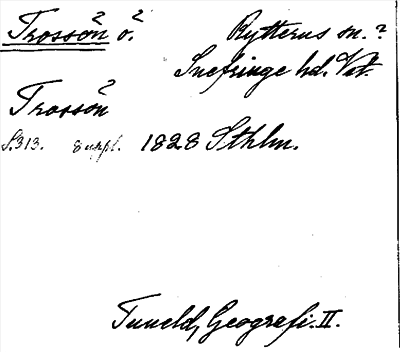 Trossön ö. Rytterns sn.?
Snefringe hd. Vstm.
Trossön
S.313. suppl. 1828 Sthlm.
Tuneld, Geografi. II.